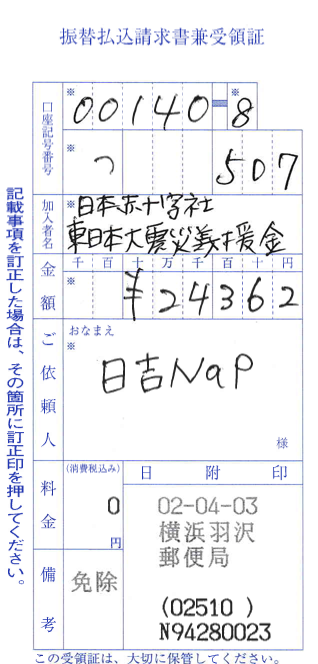 振替払込請求書兼受領証
口座記号番号
※ 00140-8 ※
※ つ 507
加入者名
※ 日本赤十字社
東日本大震災義援金
金額
千 百 十 万 千 百 十 円
※ ¥24362
ご依頼人
おなまえ
※
日吉NaP
様
料金
(消費税込み)
0
円
備考
免除
日 附 印
02-04-03
横浜羽沢
郵便局
(02510 )
N94280023
記載事項を訂正した場合は、その箇所に訂正印を押してください。
この受領証は、大切に保管してください。